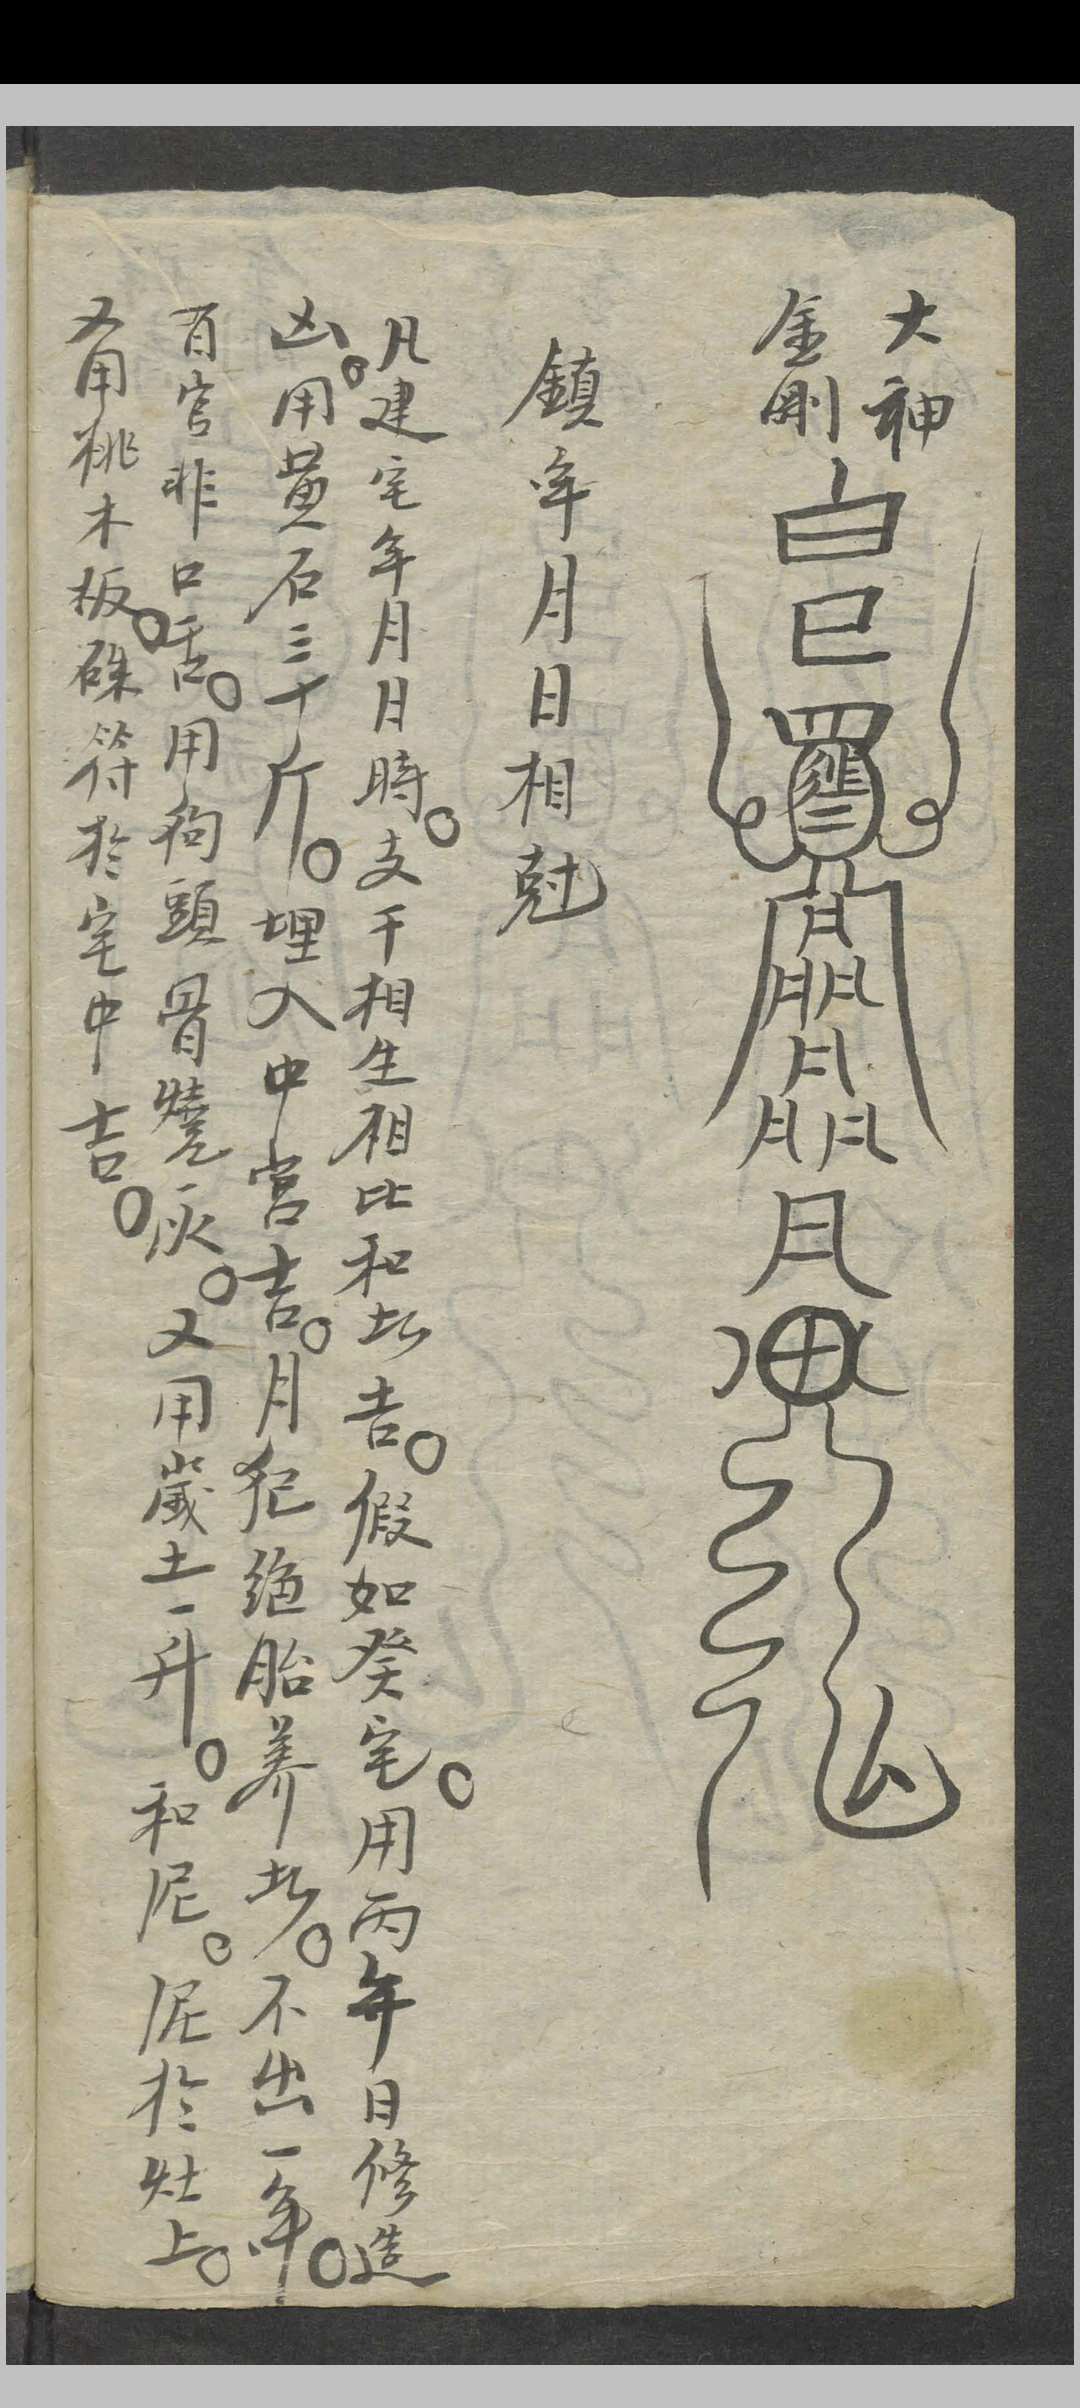 大神
金剛
鎮年月日相尅
凡建宅年月日時。支干相生相比和者吉。假如癸宅。用丙年日修造
凶。用黄石三十斤。埋入中宮吉。月犯絶胎养者。不出一年。
百官非口舌。用狗頭骨燒灰。又用歲土一升。和泥。泥於灶上。
又用桃木板。硃符於宅中吉。